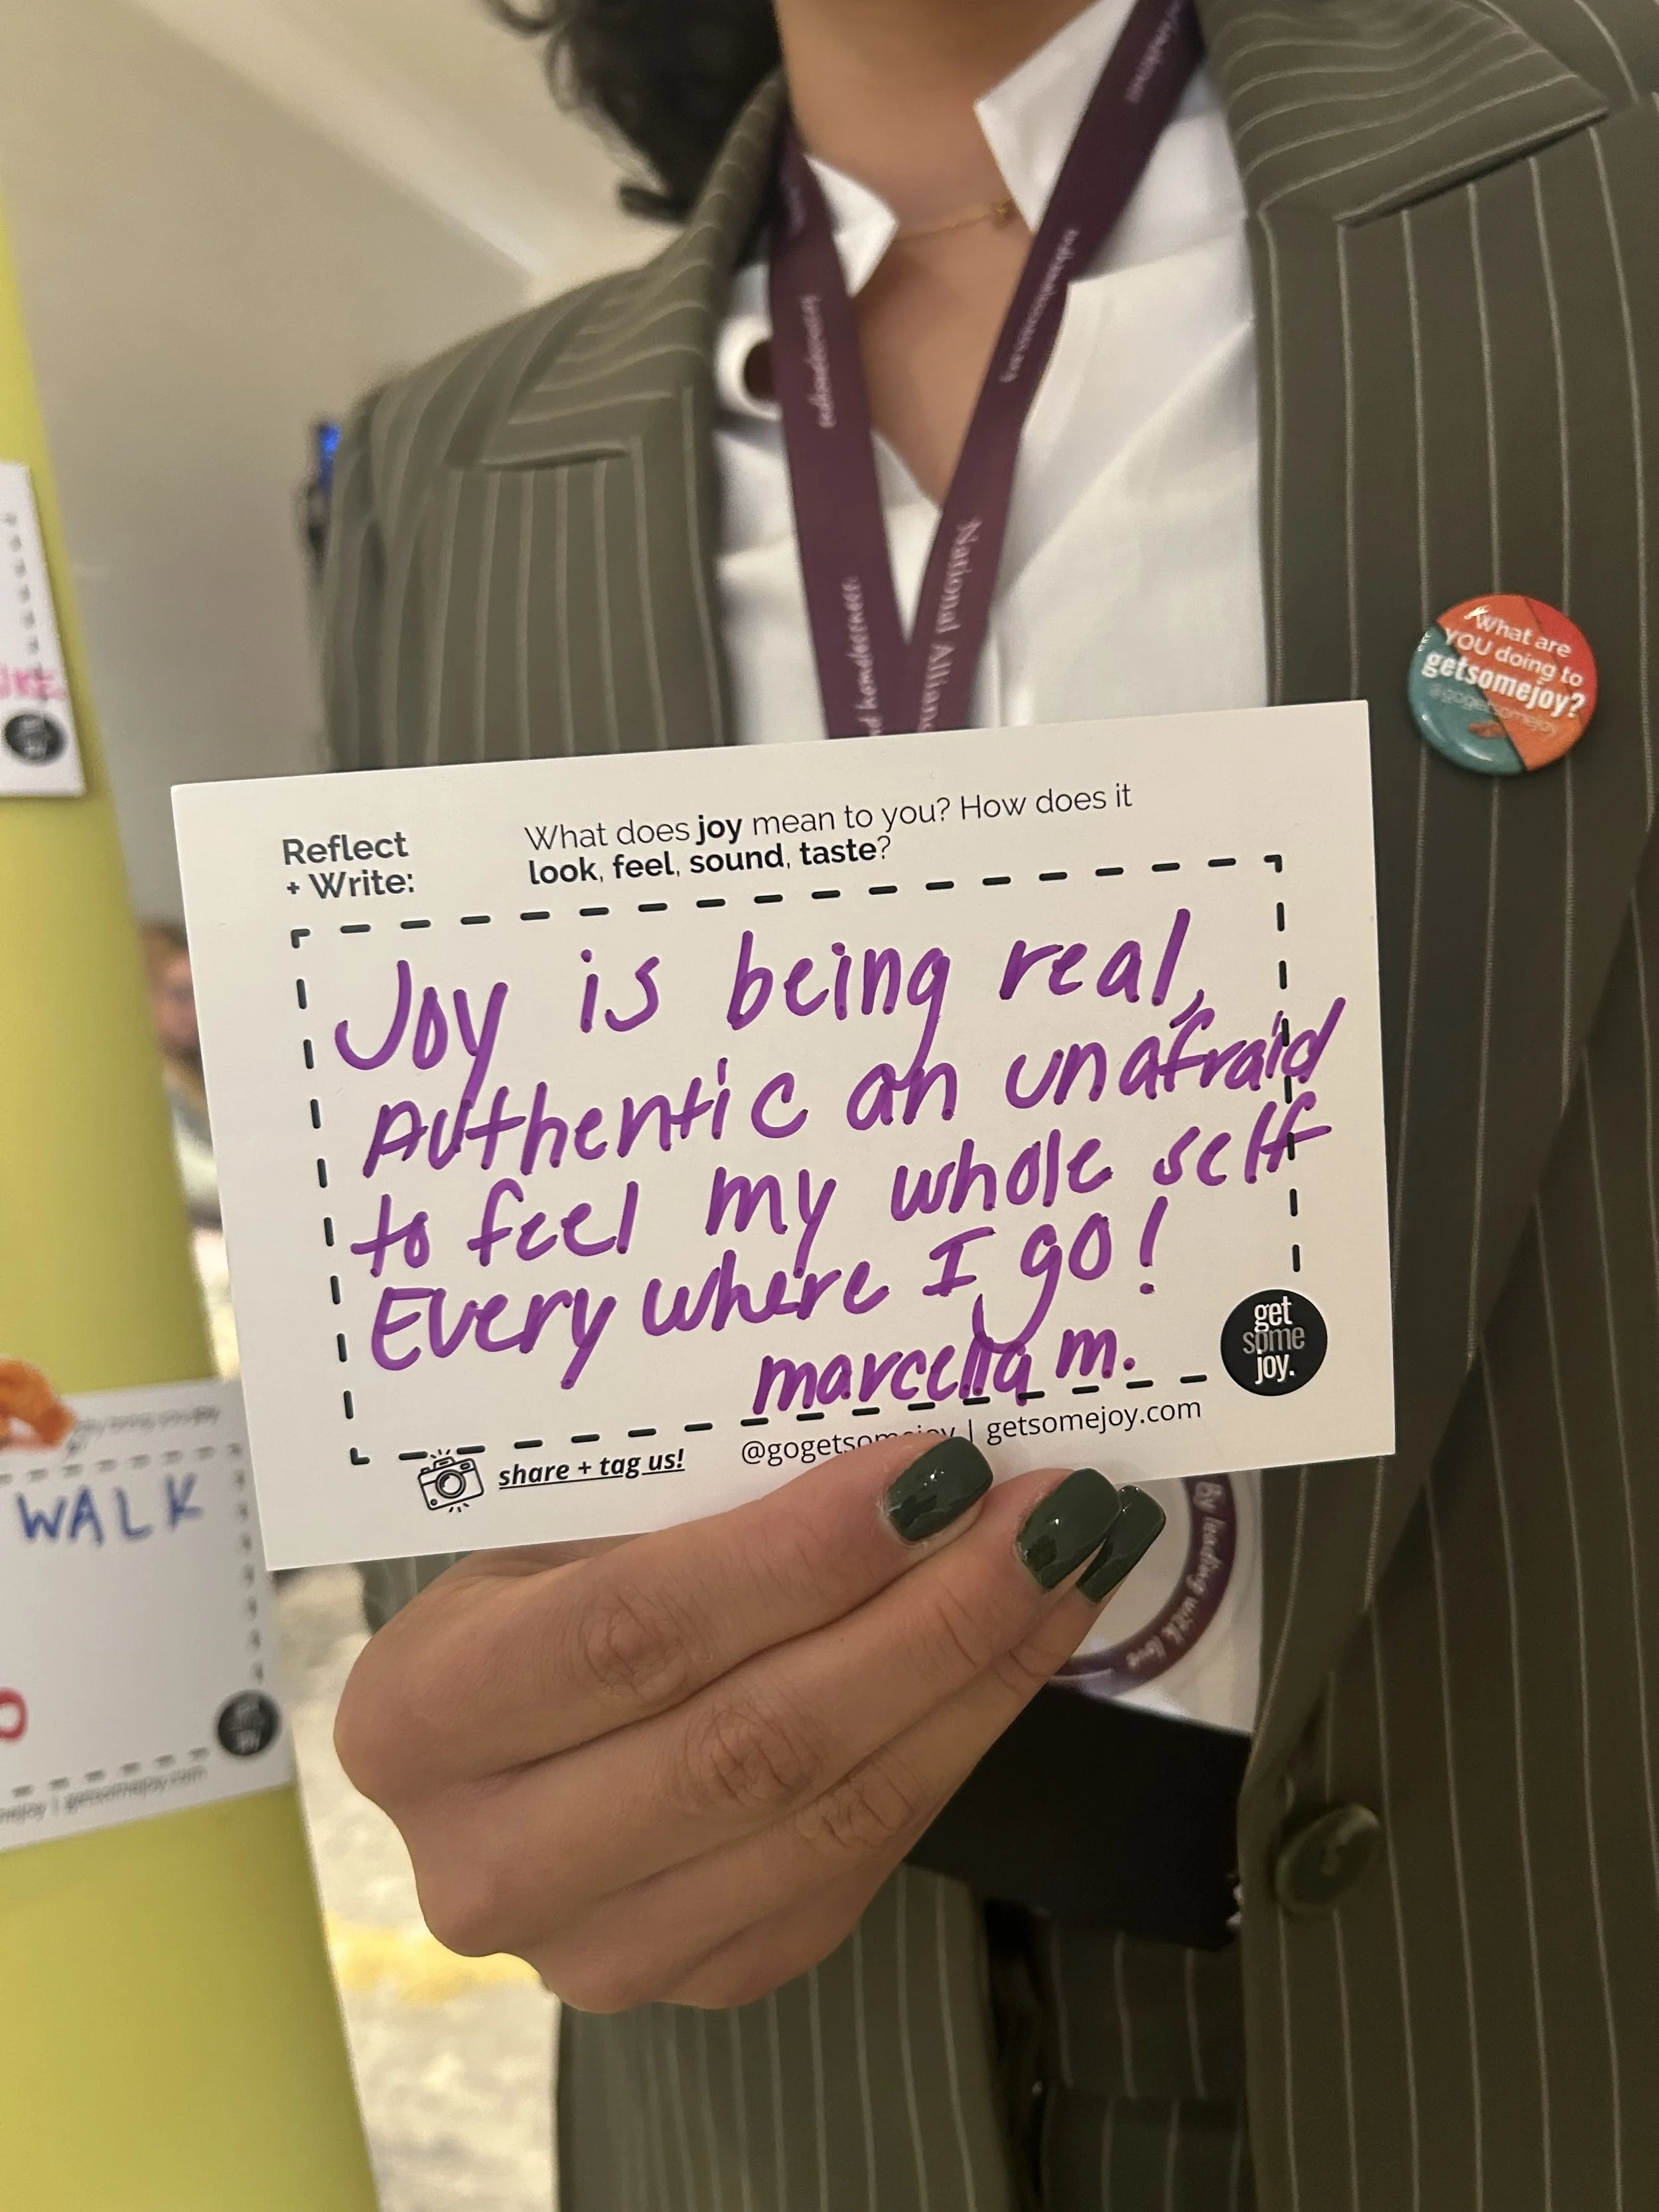 National Allian
What are
YOU doing to
getsomejoy?
@gogetsomejoy
Reflect
+ Write:
What does joy mean to you? How does it
look, feel, sound, taste?
Joy is being real,
Authentic an unafraid
to feel my whole self
Every where I go!
marcella m.
get
some
joy.
share + tag us!
@gogetsomejoy | getsomejoy.com
By leading with love
WALK
getsomejoy.com